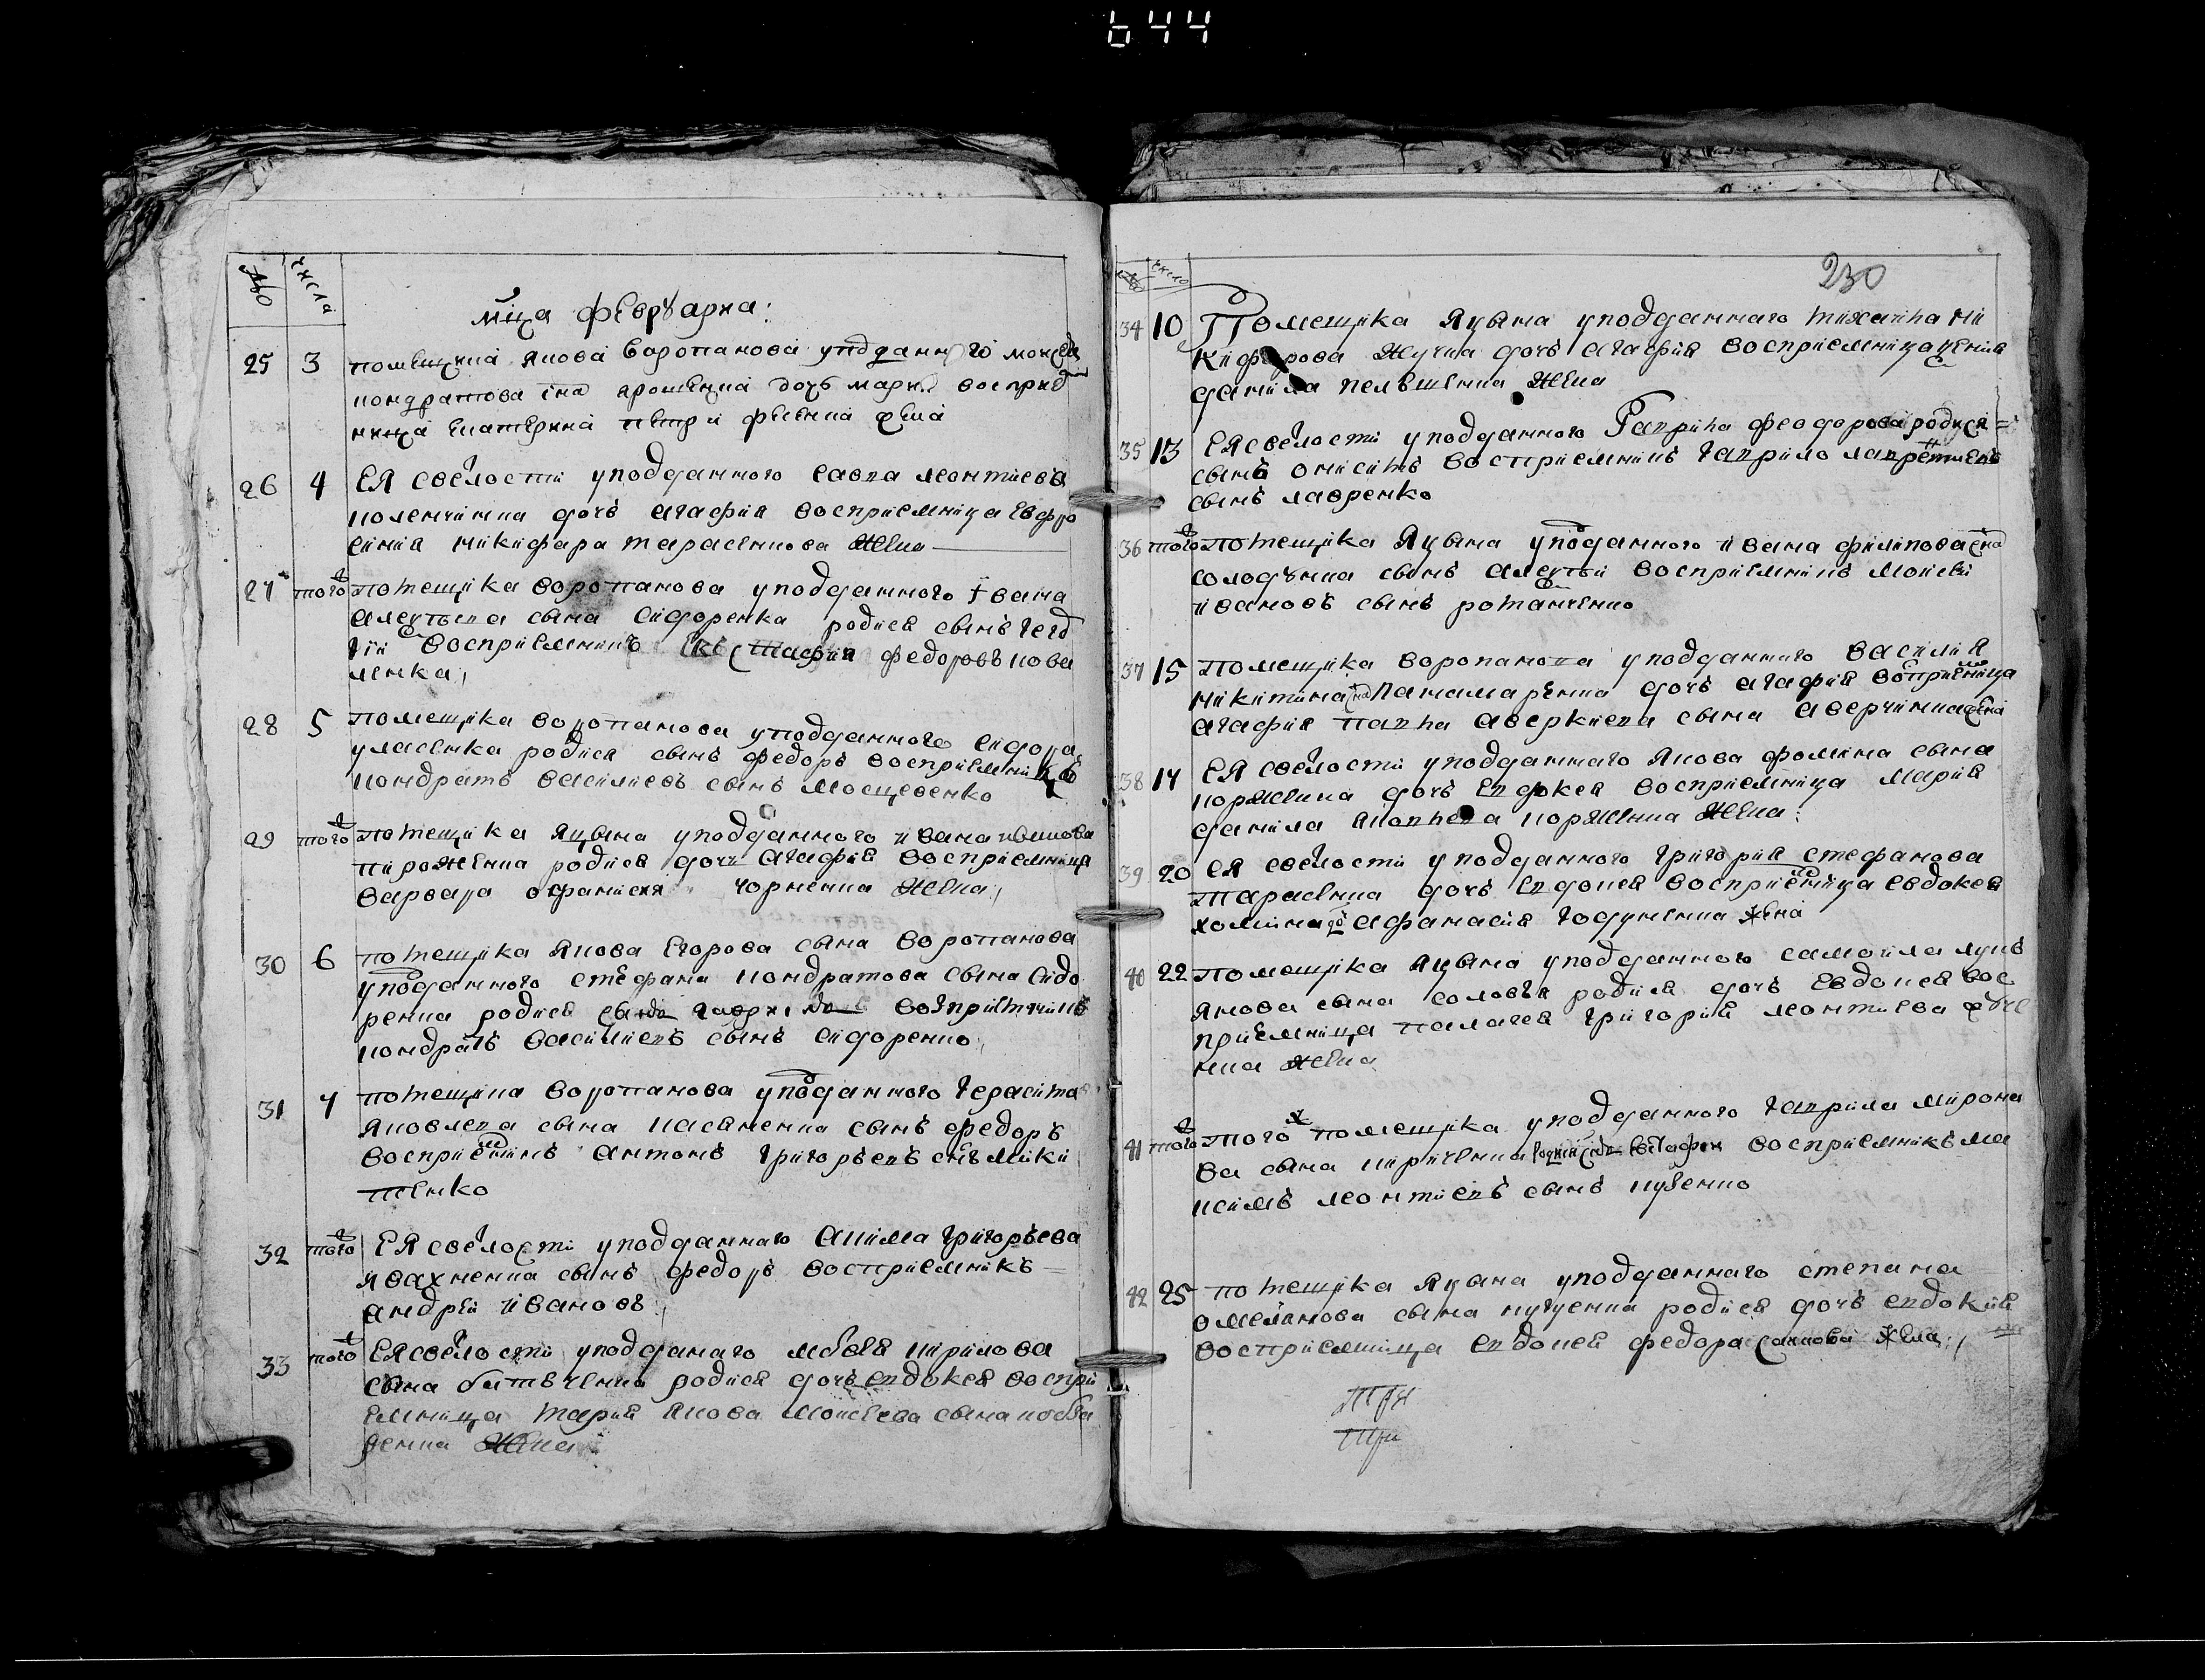 644
№ числа
мца февруариа:
25 3 помещика якова воропанова упдданного моисеа
кондратова сна ярошенка дочь мария восприе
мница екатерина петра жена
26 4 ЕЯ свѣлости уподданного савва леонтиева
дочь агафия восприемница евфро
синия никифара тарасенкова жена
27 того помещика воропанова уподданного ивана
алексѣева сына сидоренка родися сынъ геор
гий восприемникъ евстафий федоровъ кова
ленка
28 5 помещика воропанова уподданного сидора
уласенка родися сынъ федоръ восприемникъ
кондратъ василиевъ сынъ мосцевенко
29 того помещика яцына уподданного ивана
пироженка родися дочь агафия восприемница
варвара афанасия чорненка жена
30 6 помещика якова егорова сына воропанова
уподданного стефана кондратова сына сидо
ренка родися сынъ восприемникъ
кондратъ василиевъ сынъ сидоренко
31 7 помещика воропанова уподданного герасима
яковлева сына касяненка сынъ федоръ
восприемникъ антонъ григорьевъ снъ мики
тенко
32 того ЕЯ свѣлости уподданного акима григорьева
явахненка сынъ федоръ восприемникъ
андрей ивановъ
33 того ЕЯ свѣлости уподданаго кирилова
сына родися дочь евдокея воспри
емница мария якова моисеева сына
жена
230
число
34 10 Помещика яцына уподданнаго михаила ни
кифорова жучка дочь агафия восприемница
данила жена
35 13 ЕЯ свѣлости уподданного гаврила феодорова родися
сынъ онисимъ восприемникъ гаврило
сынъ лавренко
36 того помещика яцына уподданного ивана филипова сна
сынъ алексѣй восприемникъ моисей
ивановъ сынъ романченко
37 15 помещика воропанова уподданнаго василия
никитина сна панамаренка дочь агафия восприемница
агафия павла аверкиева сына аверчинка жена
38 17 ЕЯ свѣлости уподданнаго якова фомина сына
коржина дочь евдокея восприемница мария
данила яковлева коржина жена:
39 20 ея свѣлости уподданного григория стефанова
тарасенка дочь евдокея восприемница евдокея
хомина афанасия годуненка жена
40 22 помещика яцына уподданного самоила лукъ
янова сына соловѣя родися дочь евдокея вос
приемница палагея григория леонтиева
нка жена
41 того того помещика уподданного гаврила мирона
ва сына киричечка родися снъ евстафия восприемникъ ма
ксимъ леонтиевъ сынъ
42 25 помещика яцына уподданнаго степана
омелянова сына куценка родися дочь евдокия
восприемница евдокея федора жена
три
три